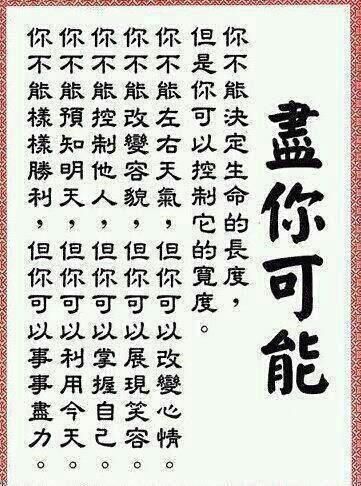 盡你可能
你不能決定生命的長度，
但是你可以控制它的寬度。
你不能左右天氣，但你可以改變心情。
你不能改變容貌，但你可以展現笑容。
你不能控制他人，但你可以掌握自己。
你不能預知明天，但你可以利用今天。
你不能樣樣勝利，但你可以事事盡力。